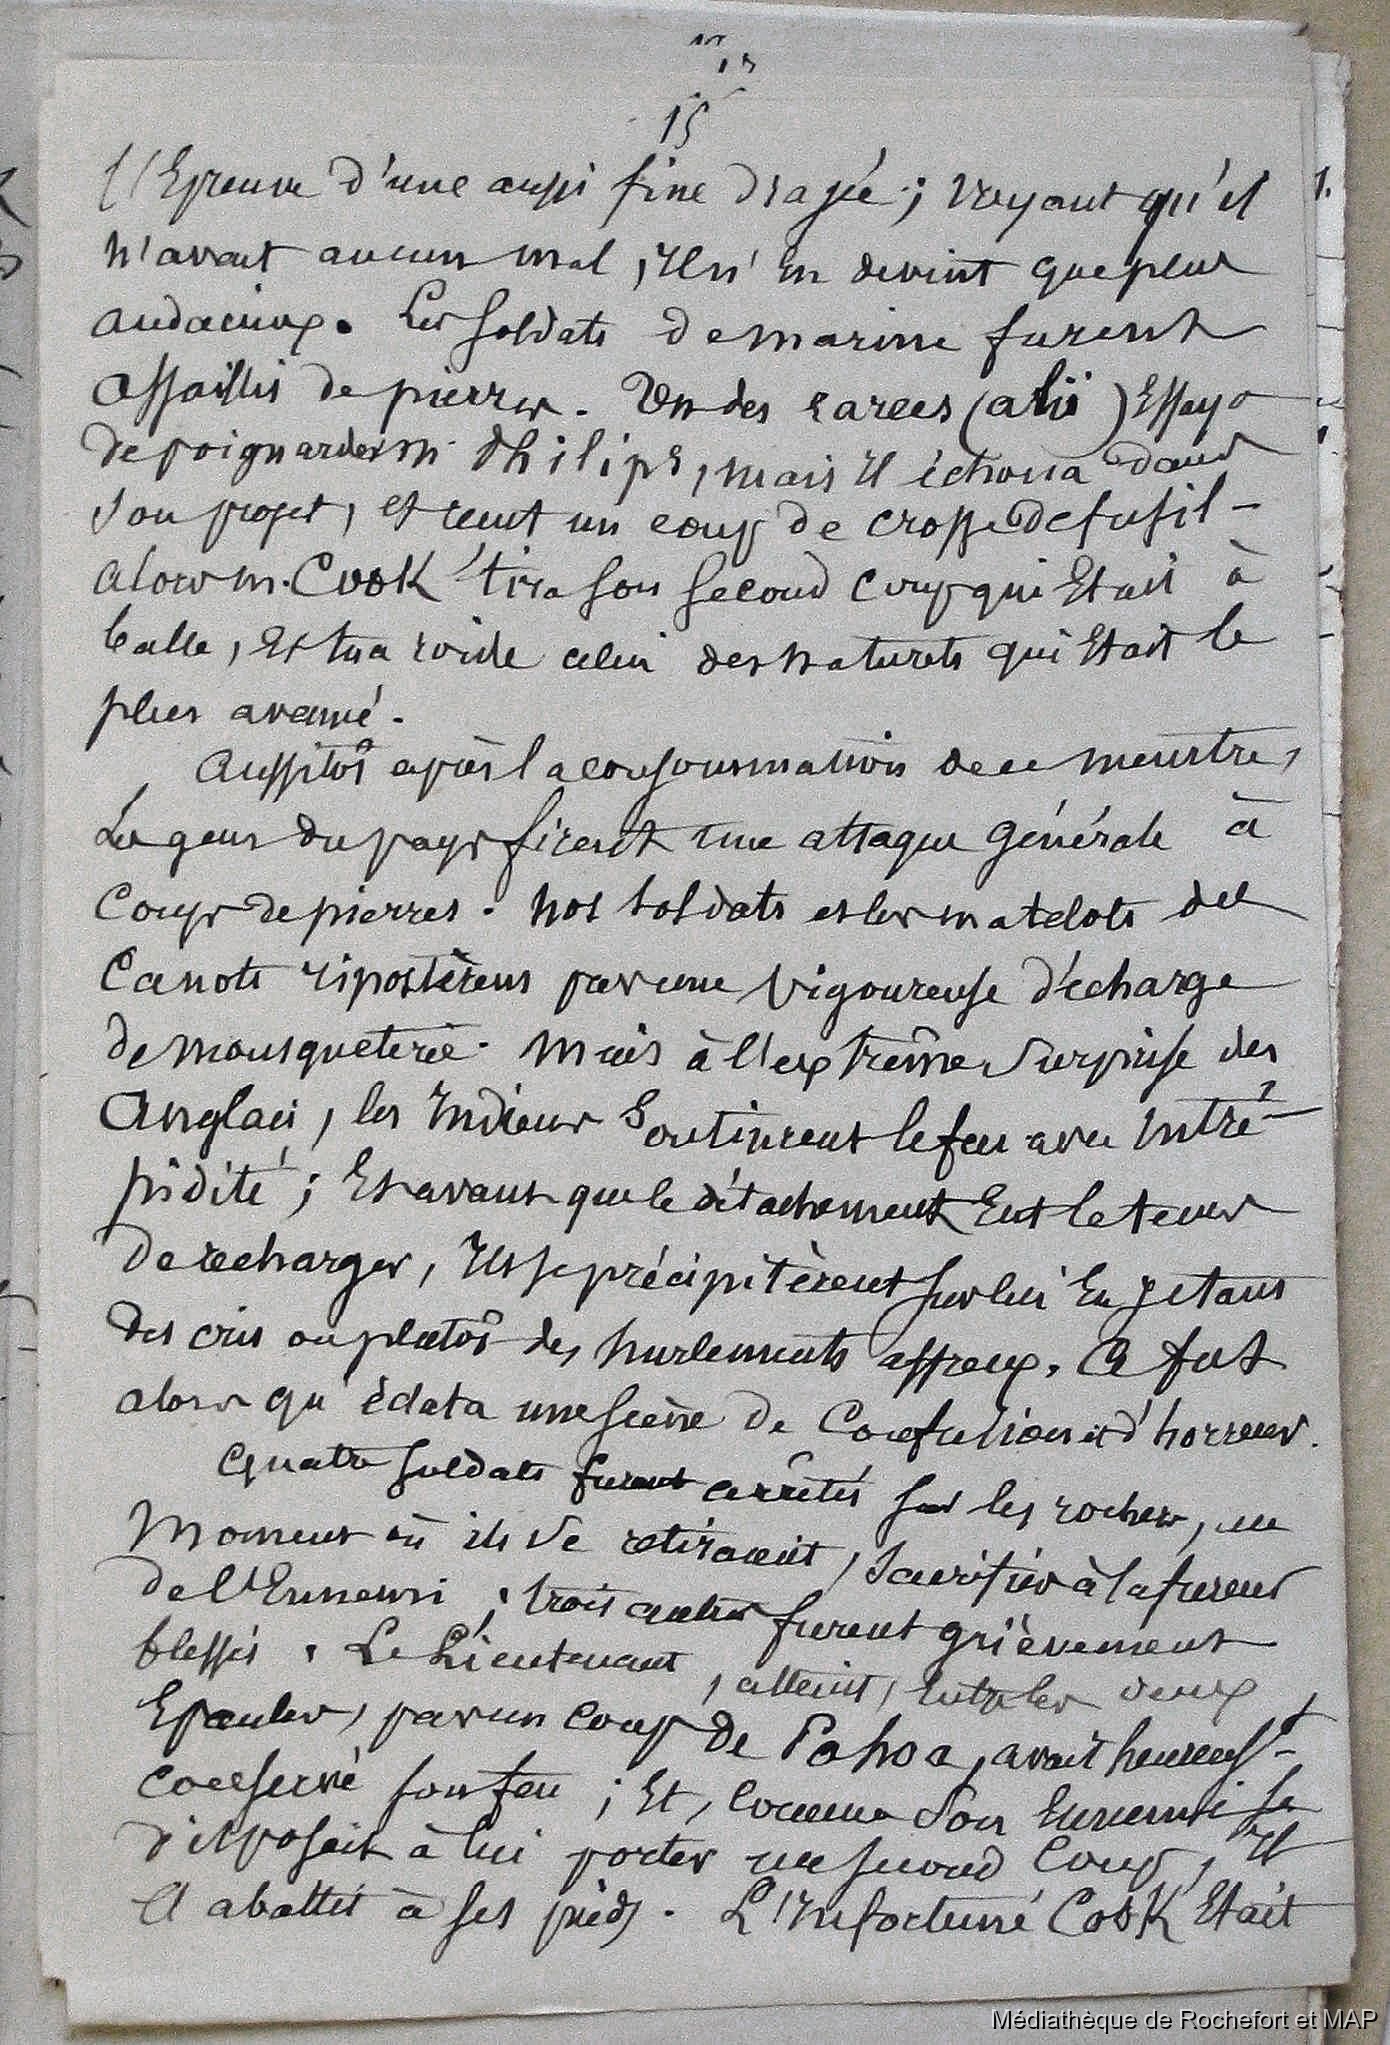 15
l'Epreuve d'une aussi fine dragée ; voyant qu'il
n'avait aucun mal, Il n'en devint que plus
audacieux. Les soldats de marine furent
assaillis de pierres. Un des earees (alii) Essaya
de poignarder m. Philips, mais il échoua dans
son projet, et reçut un coup de crosse de fusil -
alors m. Cook tira son second coup qui Etait à
balle, Et tua roide celui des naturels qui Etait le
plus avancé.
Aussitôt après la consommation de ce meurtre,
Les gens du pays firent une attaque générale à
Coups de pierres. nos soldats et les matelots des
Canots ripostèrent par une vigoureuse décharge
de mousqueterie. Mais à l'extrême surprise des
Anglais, les Indiens Soutinrent le feu avec intré-
pidité ; Et avant que le détachement Eut le tems
de recharger, Ils se précipitèrent sur lui En jetant
des cris ou plutôt des hurlements affreux. Ce fut
alors qu'éclata une scène de Confusion et d'horreur.
Quatre soldats furent arrêtés sur les rochers, au
Moment où ils se retiraient, sacrifiés à la fureur
de l'Ennemi ; trois autres furent grièvement
blessés. Le Lieutenant, atteint, Entre les deux
Epaules, par un coup de Pahoa, avait heureusᵗ-
conservé son feu ; Et, comme son Ennemi se
disposait à lui porter un second Coup, Il
l'abattit à ses pieds. L'Infortuné Cook Etait
Médiathèque de Rochefort et MAP